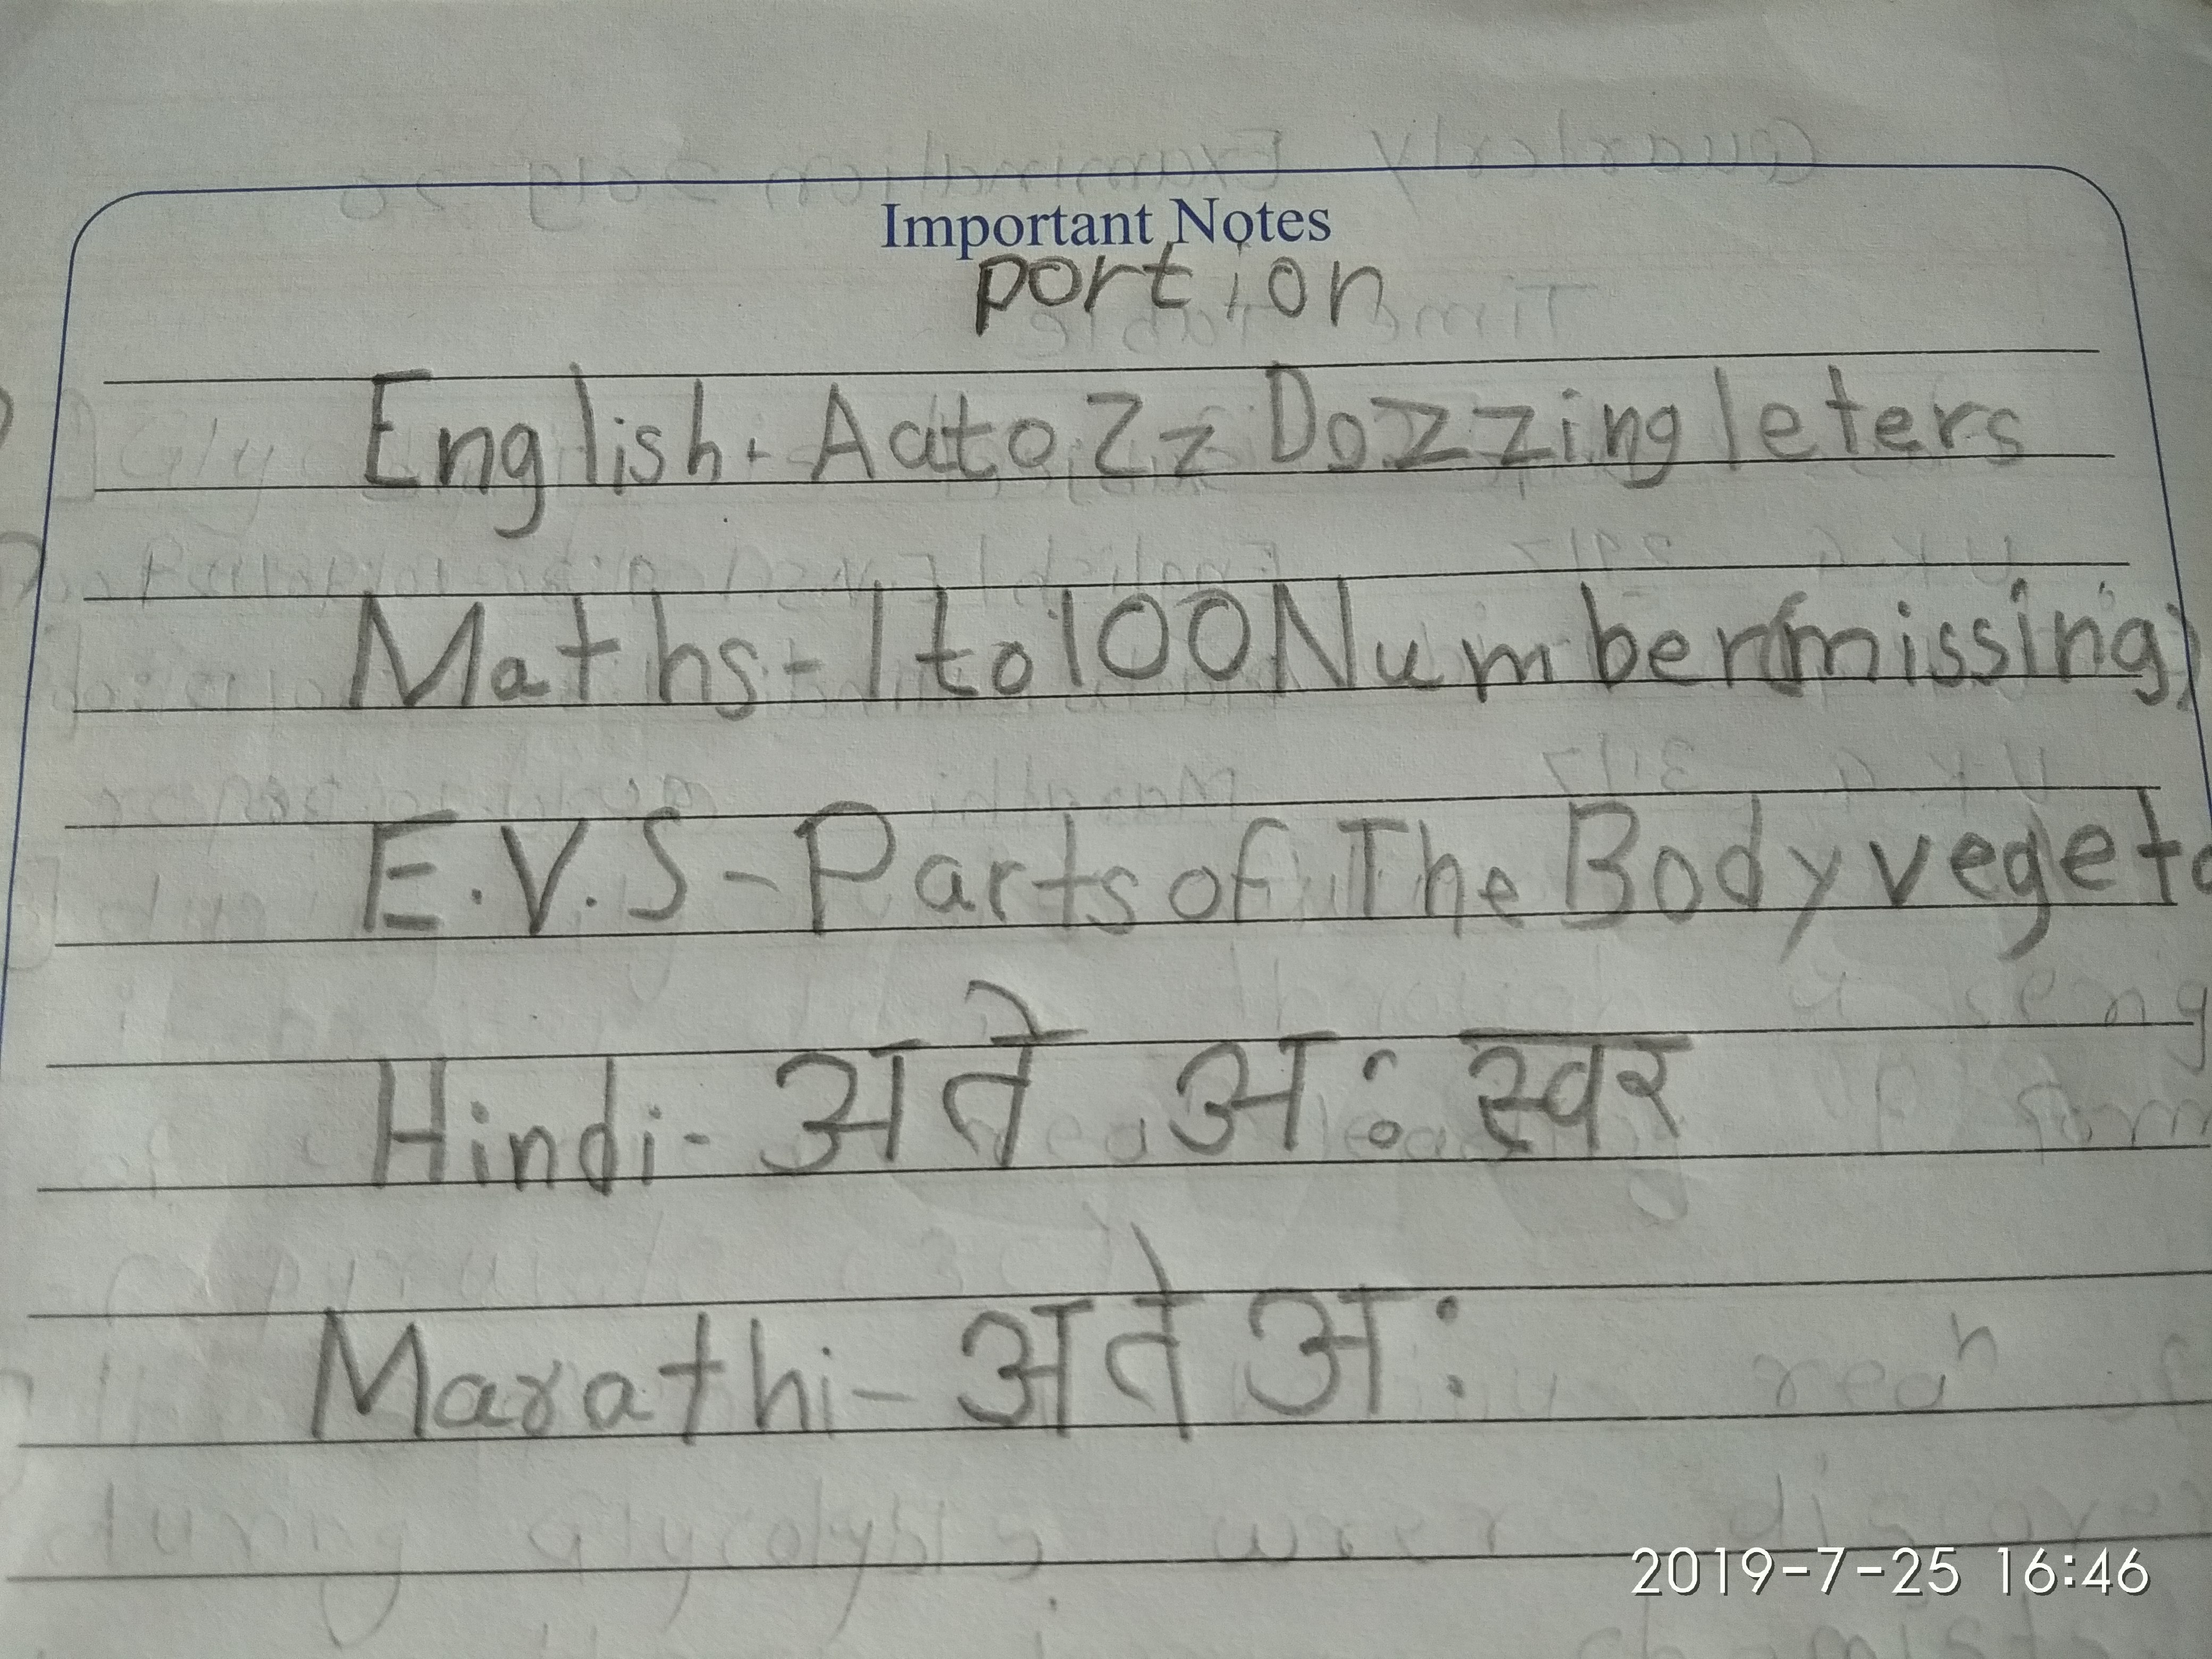 Important Notes
portion
English. Aa to Zz Dozzing leters
Maths - 1 to 100 Number (missing)
E.V.S - Parts of The Body
Hindi - अ ते अः स्वर
Marathi - अ ते अः
2019-7-25 16:46